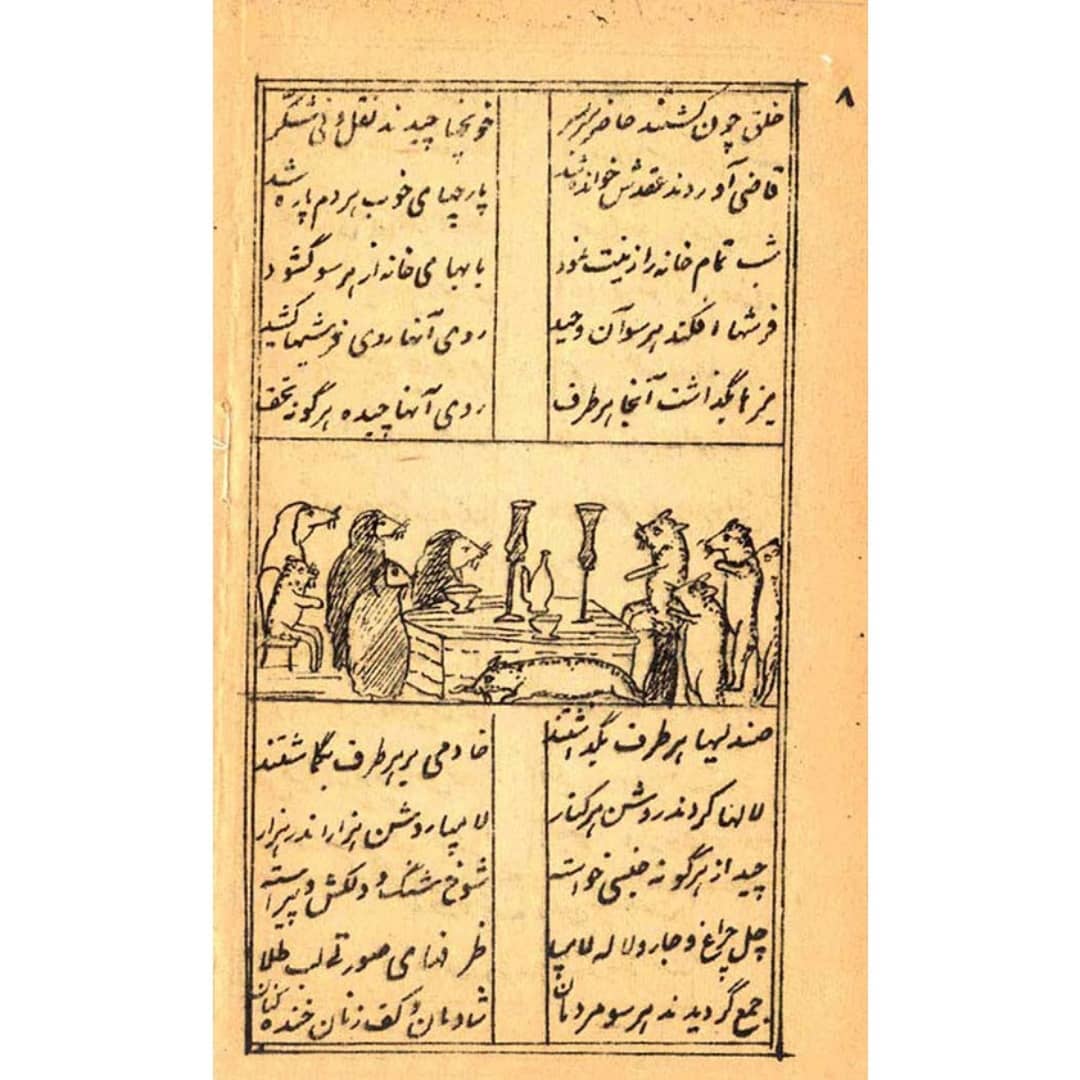 ۸
خلق چون گشتند حاضر سربسر خونچها چیدند نقل و نی شکر
قاضی آوردند عقدش خوانده شد پارچهای خوب هردم پاره شد
شب تمام خانه را زینت نمود بابهای خانه از هر سو گشود
فرشها افکند هر سو آن وحید روی آنها روی فرشیها کشید
میزها بگذاشت آنجا هر طرف روی آنها چیده هرگونه تحف
صندلیها هر طرف بگذاشتند خادمی بر هر طرف بگماشتند
لالها کردند روشن هر کنار لامپا روشن هزار اندر هزار
چید از هرگونه جنسی خواسته شوخ شنگ و دلکش و پیراسته
چل چراغ و جار و لاله لامپا ظرفهای صورتی لب طلا
جمع گردیدند هر سو مردمان شادمان و کف زنان خنده کنان